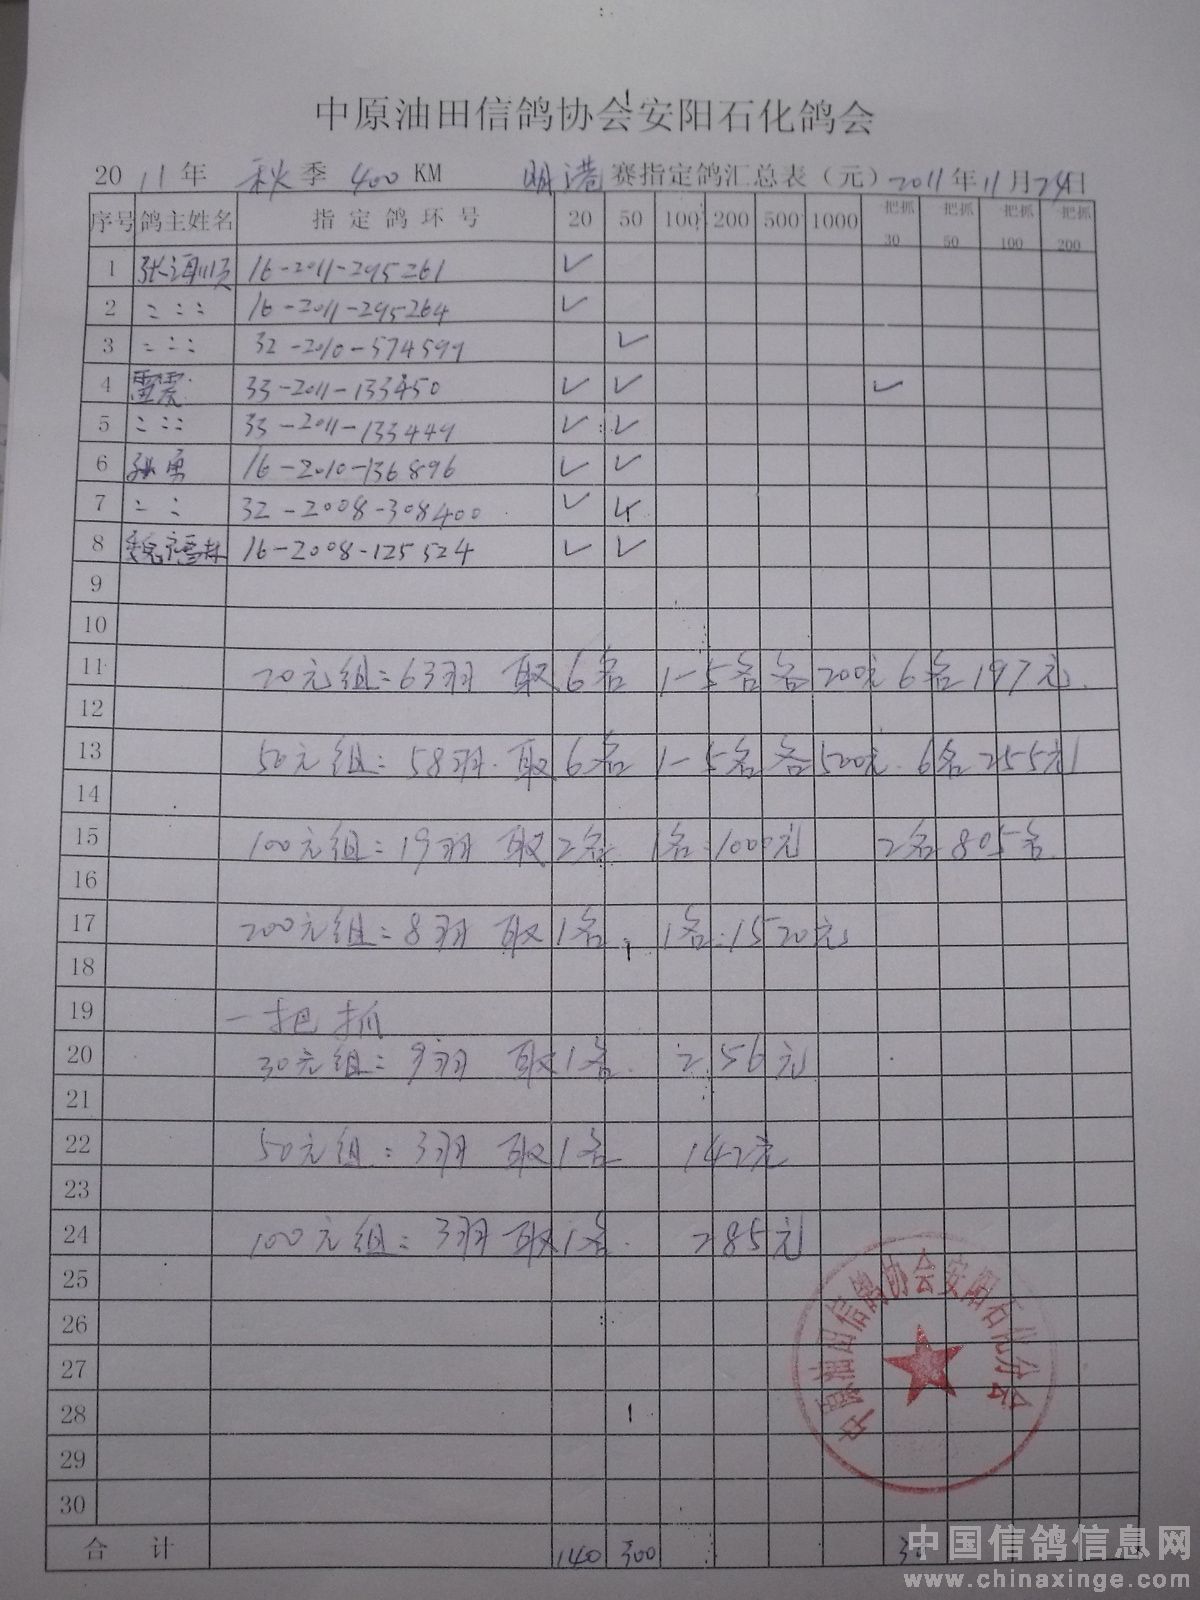 中原油田信鸽协会安阳石化鸽会
2011年 秋季 400KM 明港赛指定鸽汇总表（元）2011年11月24日
序号 鸽主姓名 指定鸽环号 20 50 100 200 500 1000 一把抓30 一把抓50 一把抓100 一把抓200
1 16-2011-295261 ✓
2 16-2011-295264 ✓
3 32-2010-574599 ✓
4 雷震 33-2011-133450 ✓ ✓ ✓
5 33-2011-133449 ✓ ✓
6 张勇 16-2010-136896 ✓ ✓
7 32-2008-308400 ✓ ✓
8 16-2008-125524 ✓ ✓
9
10
11 20元组：63羽 取6名 1-5名各200元 6名197元.
12
13 50元组：58羽. 取6名 1-5名各500元. 6名255元
14
15 100元组：19羽 取2名 1名:1000元 2名805名
16
17 200元组：8羽 取1名, 1名:1520元
18
19 一把抓
20 30元组：9羽 取1名. 256元
21
22 50元组：3羽 取1名 142元
23
24 100元组：3羽 取1名. 285元
25
26
27
28
29
30
合计 140 300 30
中原油田信鸽协会安阳石化分会
中国信鸽信息网
www.chinaxinge.com